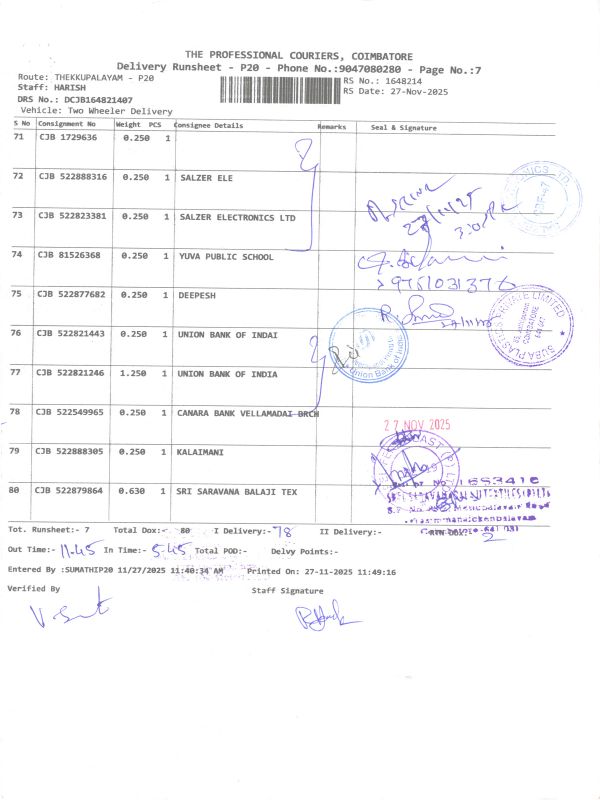 THE PROFESSIONAL COURIERS, COIMBATORE
Delivery Runsheet - P20 - Phone No.:9047080280 - Page No.:7
Route: THEKKUPALAYAM - P20
RS No.: 1648214
Staff: HARISH
RS Date: 27-Nov-2025
DRS No.: DCJB164821407
Vehicle: Two Wheeler Delivery
S No Consignment No Weight PCS Consignee Details Remarks Seal & Signature
71 CJB 1729636 0.250 1
72 CJB 522888316 0.250 1 SALZER ELE
73 CJB 522823381 0.250 1 SALZER ELECTRONICS LTD
27/11/25
74 CJB 81526368 0.250 1 YUVA PUBLIC SCHOOL
9751031376
75 CJB 522877682 0.250 1 DEEPESH
SUBA PLASTICS PRIVATE LIMITED
COIMBATORE
76 CJB 522821443 0.250 1 UNION BANK OF INDAI
Union Bank of India
77 CJB 522821246 1.250 1 UNION BANK OF INDIA
78 CJB 522549965 0.250 1 CANARA BANK VELLAMADAI BRCH
27 NOV 2025
79 CJB 522888305 0.250 1 KALAIMANI
80 CJB 522879864 0.630 1 SRI SARAVANA BALAJI TEX
Tot. Runsheet:- 7 Total Dox:- 80 I Delivery:- 78 II Delivery:- RTN DOX:- 2
Out Time:- 11.45 In Time:- 5.45 Total POD:- Delvy Points:-
Entered By :SUMATHIP20 11/27/2025 11:40:34 AM Printed On: 27-11-2025 11:49:16
Verified By Staff Signature